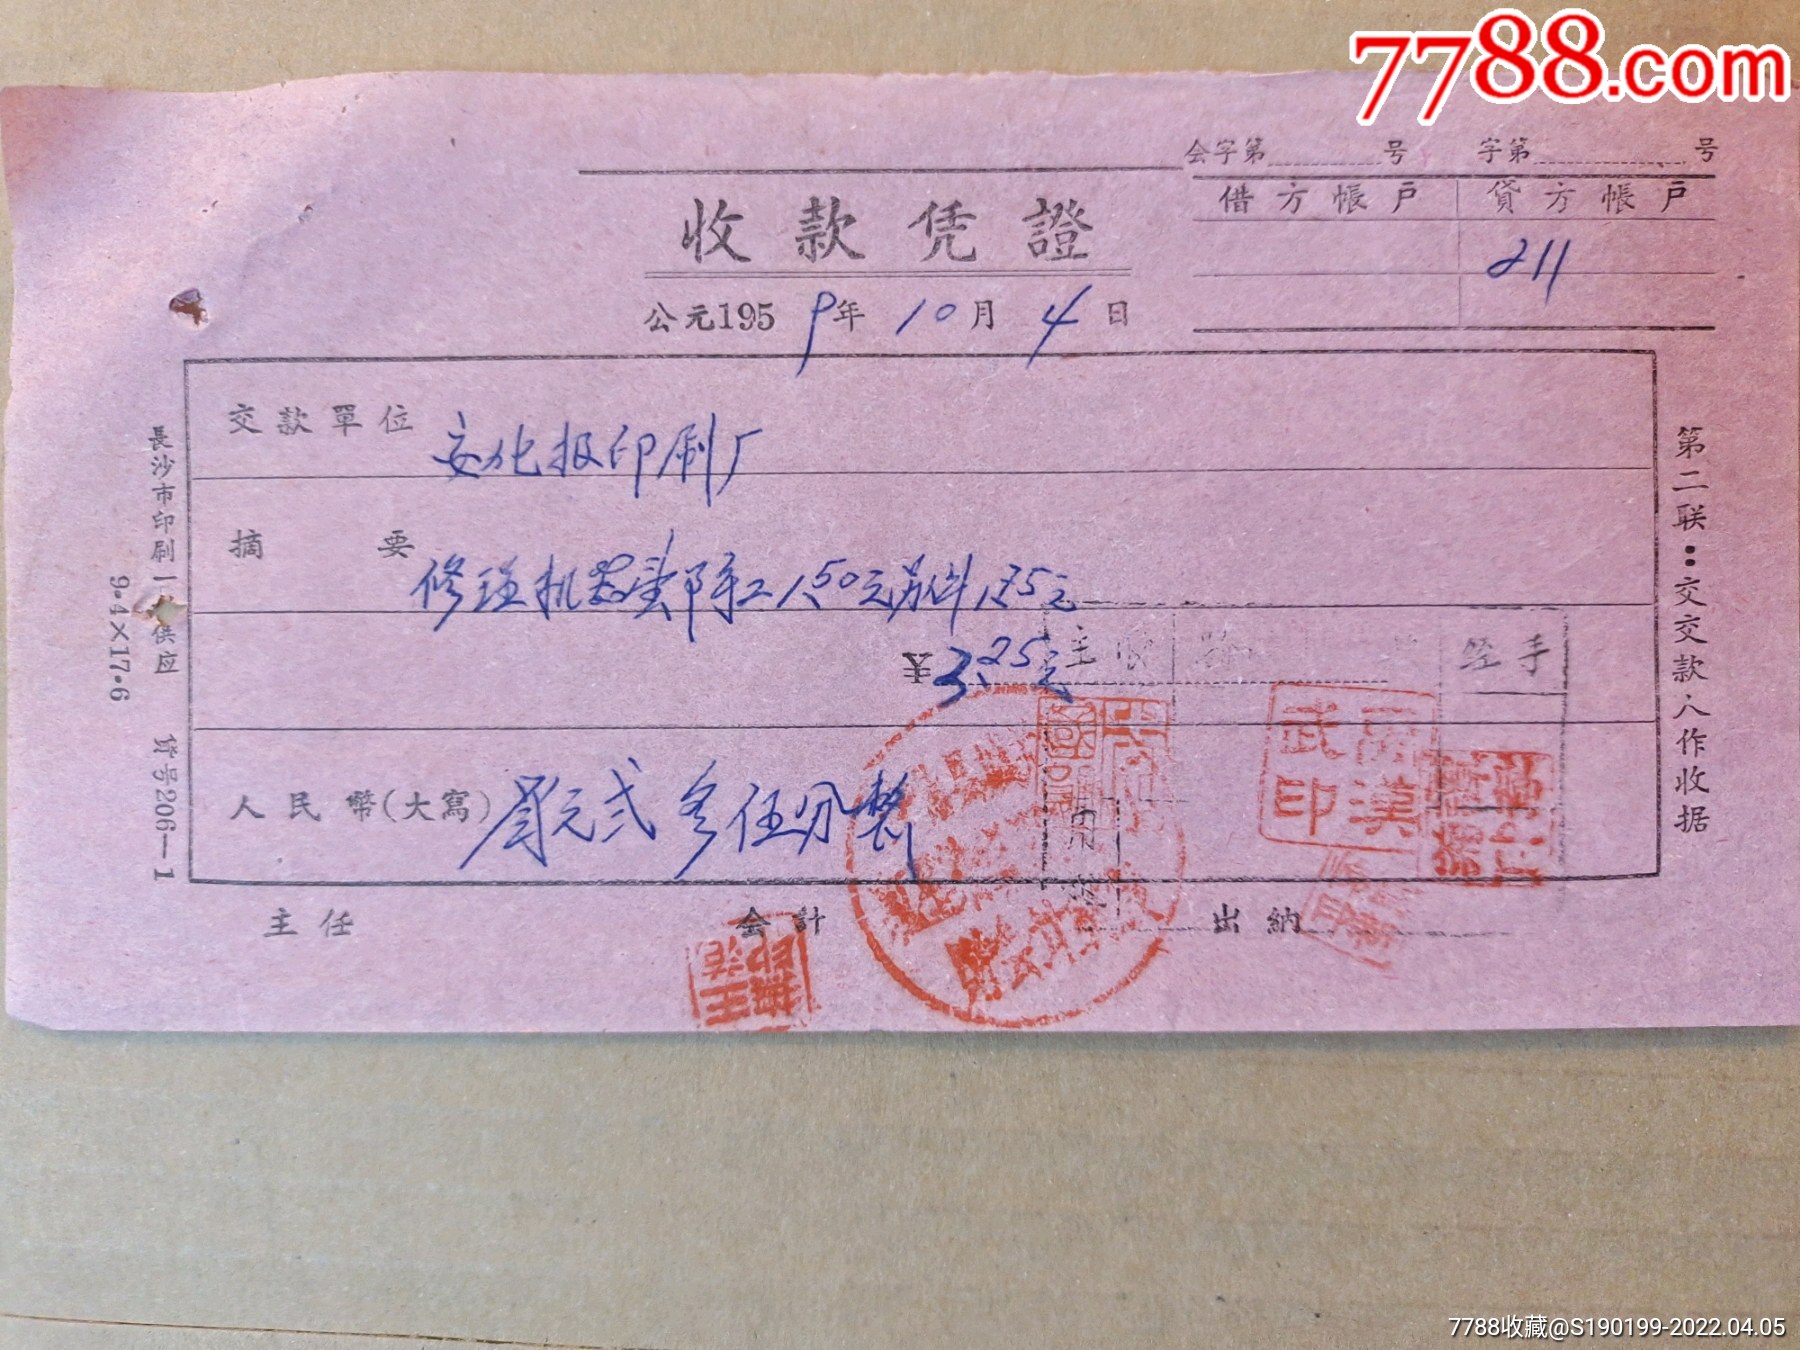 7788.com
会字第 号 字第 号
借方帳戶 貸方帳戶
211
收款凭證
公元1959年10月4日
交款單位 安化报印刷厂
摘 要 修理机器 工1.50元 1.75元
3.25元
主 手经
人民幣(大寫) 叁元弍角伍分整
主任 会計 出納
長沙市印刷一 供应 貨号206—1
9·4×17·6
第二联：交交款人作收据
武印 漢
7788收藏@S190199-2022.04.05